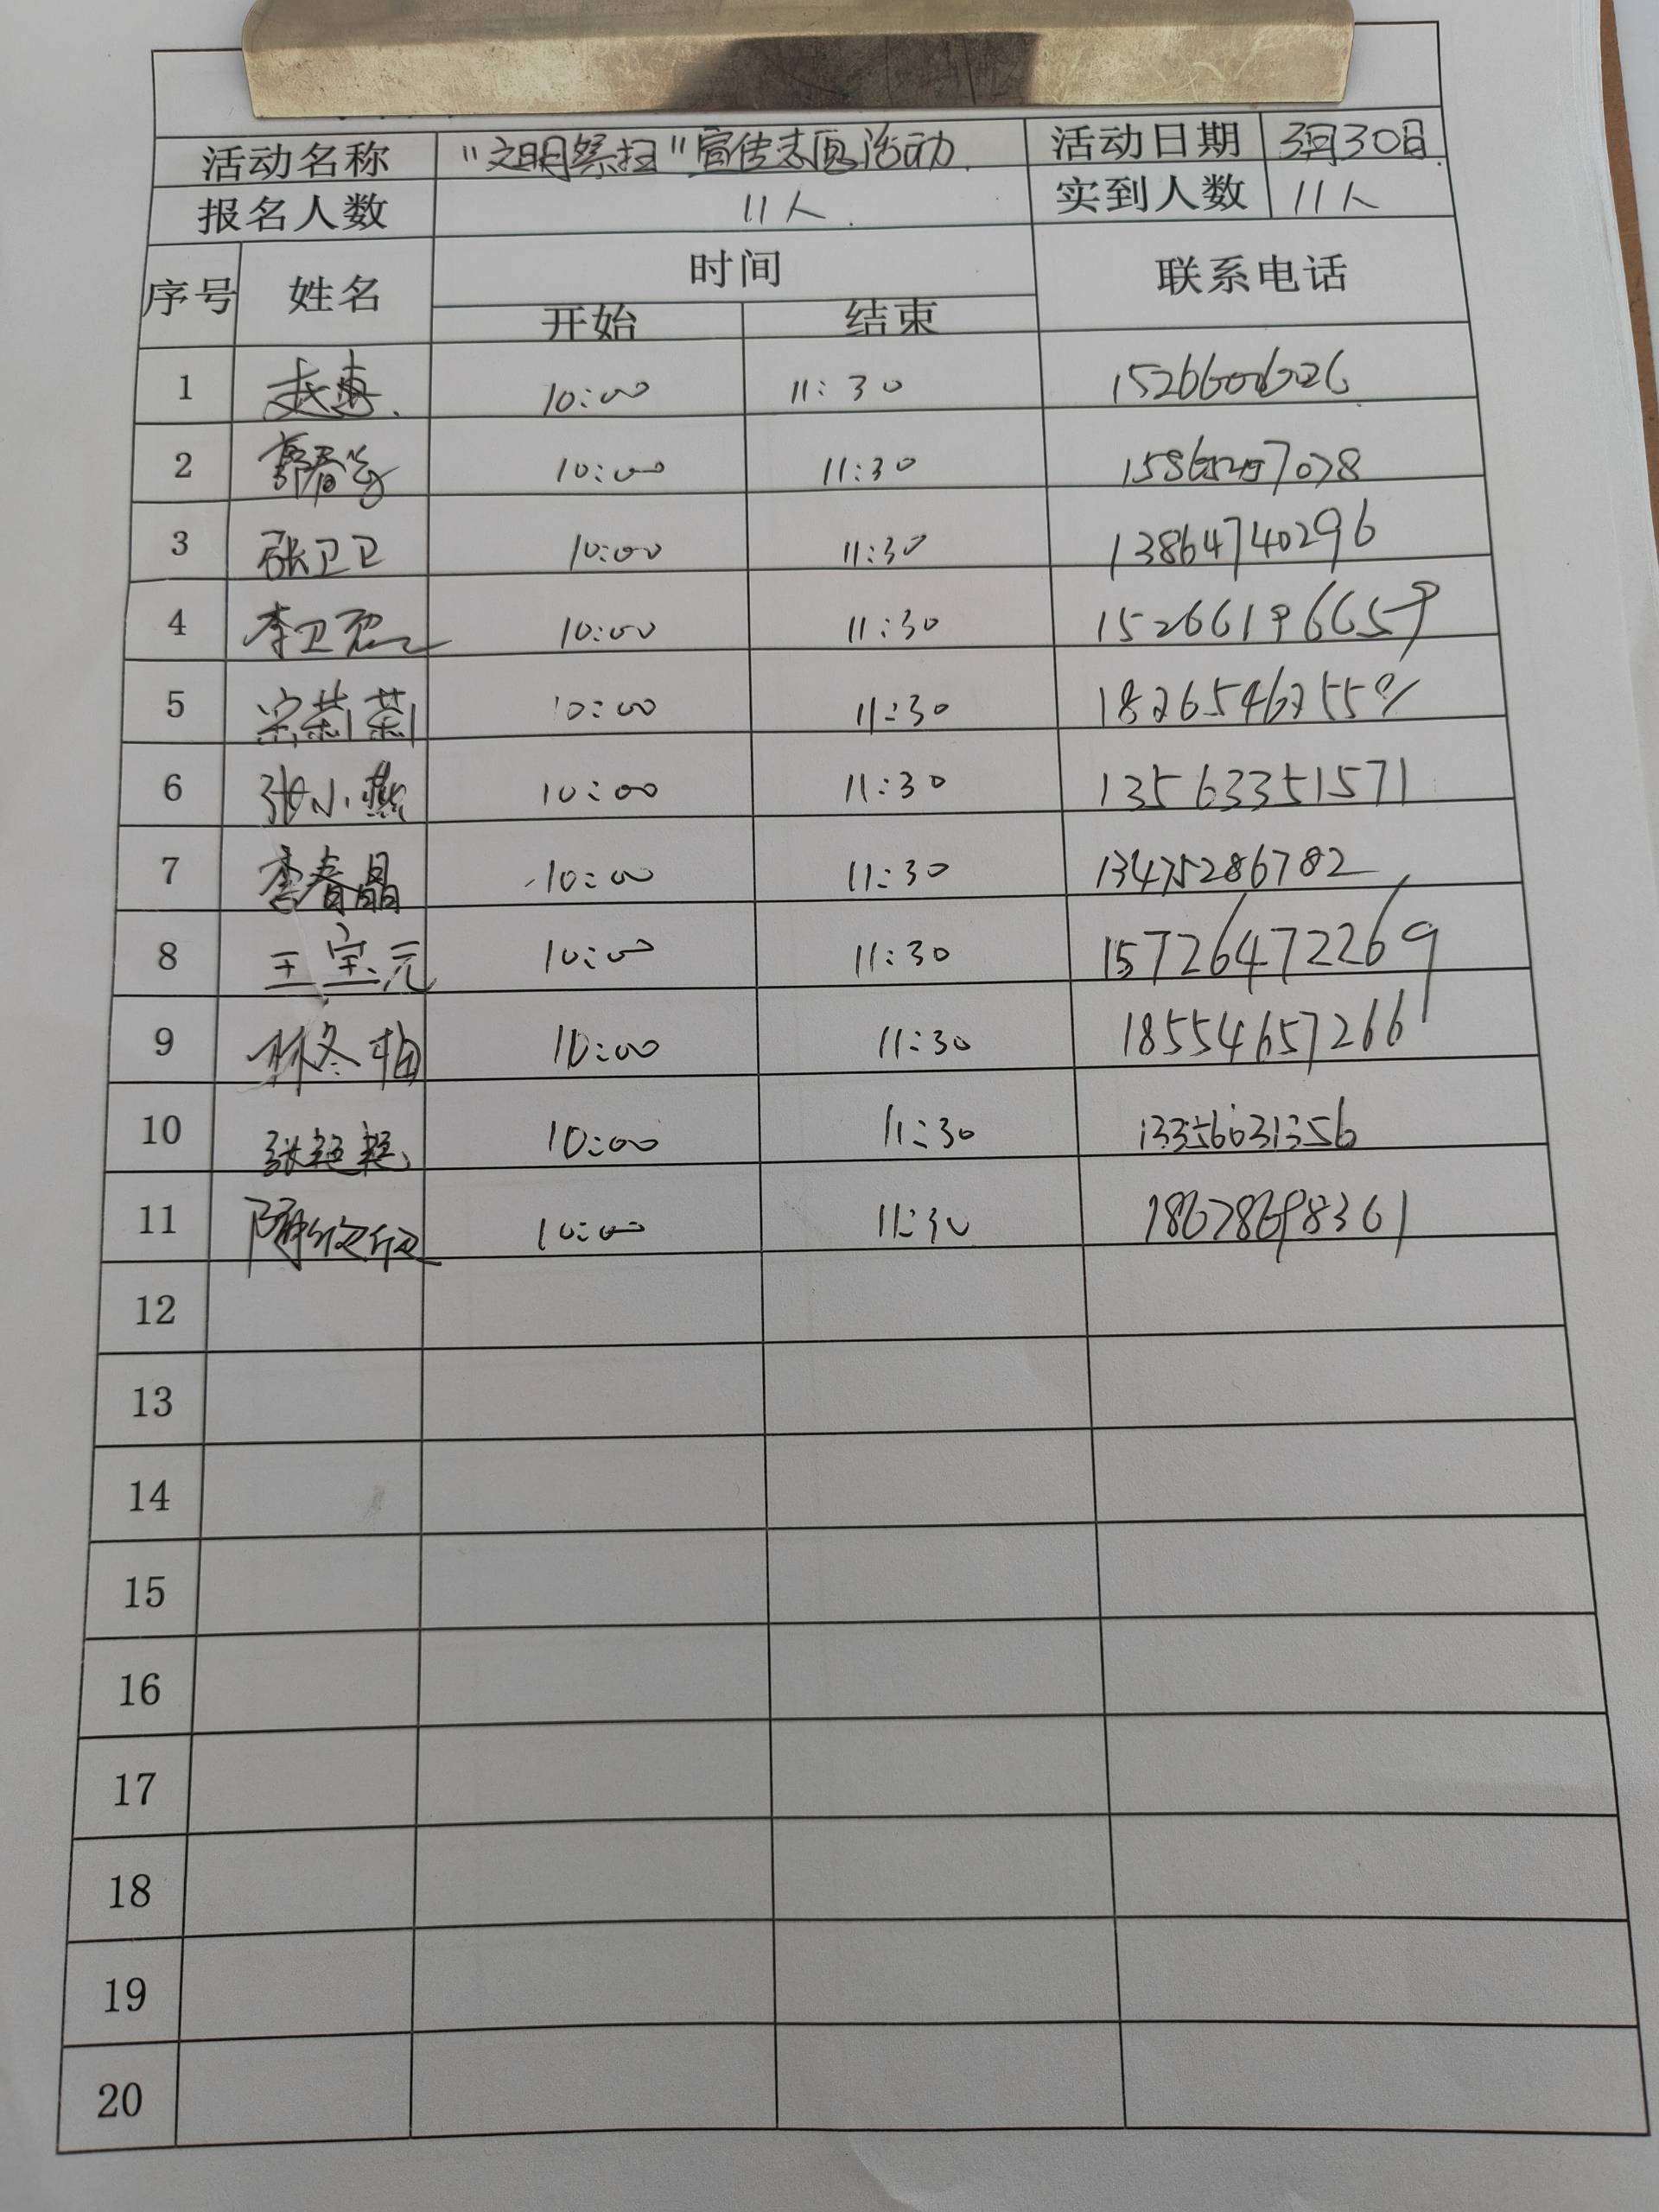 活动名称 "文明祭扫"宣传志愿活动 活动日期 3月30日
报名人数 11人 实到人数 11人
序号 姓名 时间 联系电话
开始 结束
1 10:00 11:30
2 10:00 11:30
3 张卫卫 10:00 11:30 13864740296
4 李卫 10:00 11:30 15266196659
5 宋莉莉 10:00 11:30
6 张小燕 10:00 11:30 13563351571
7 李春晶 10:00 11:30 13475286782
8 王宝元 10:00 11:30 15726472269
9 林冬梅 10:00 11:30 18554657266
10 张超超 10:00 11:30 13356631356
11 隋欣欣 10:00 11:30 18678698361
12
13
14
15
16
17
18
19
20